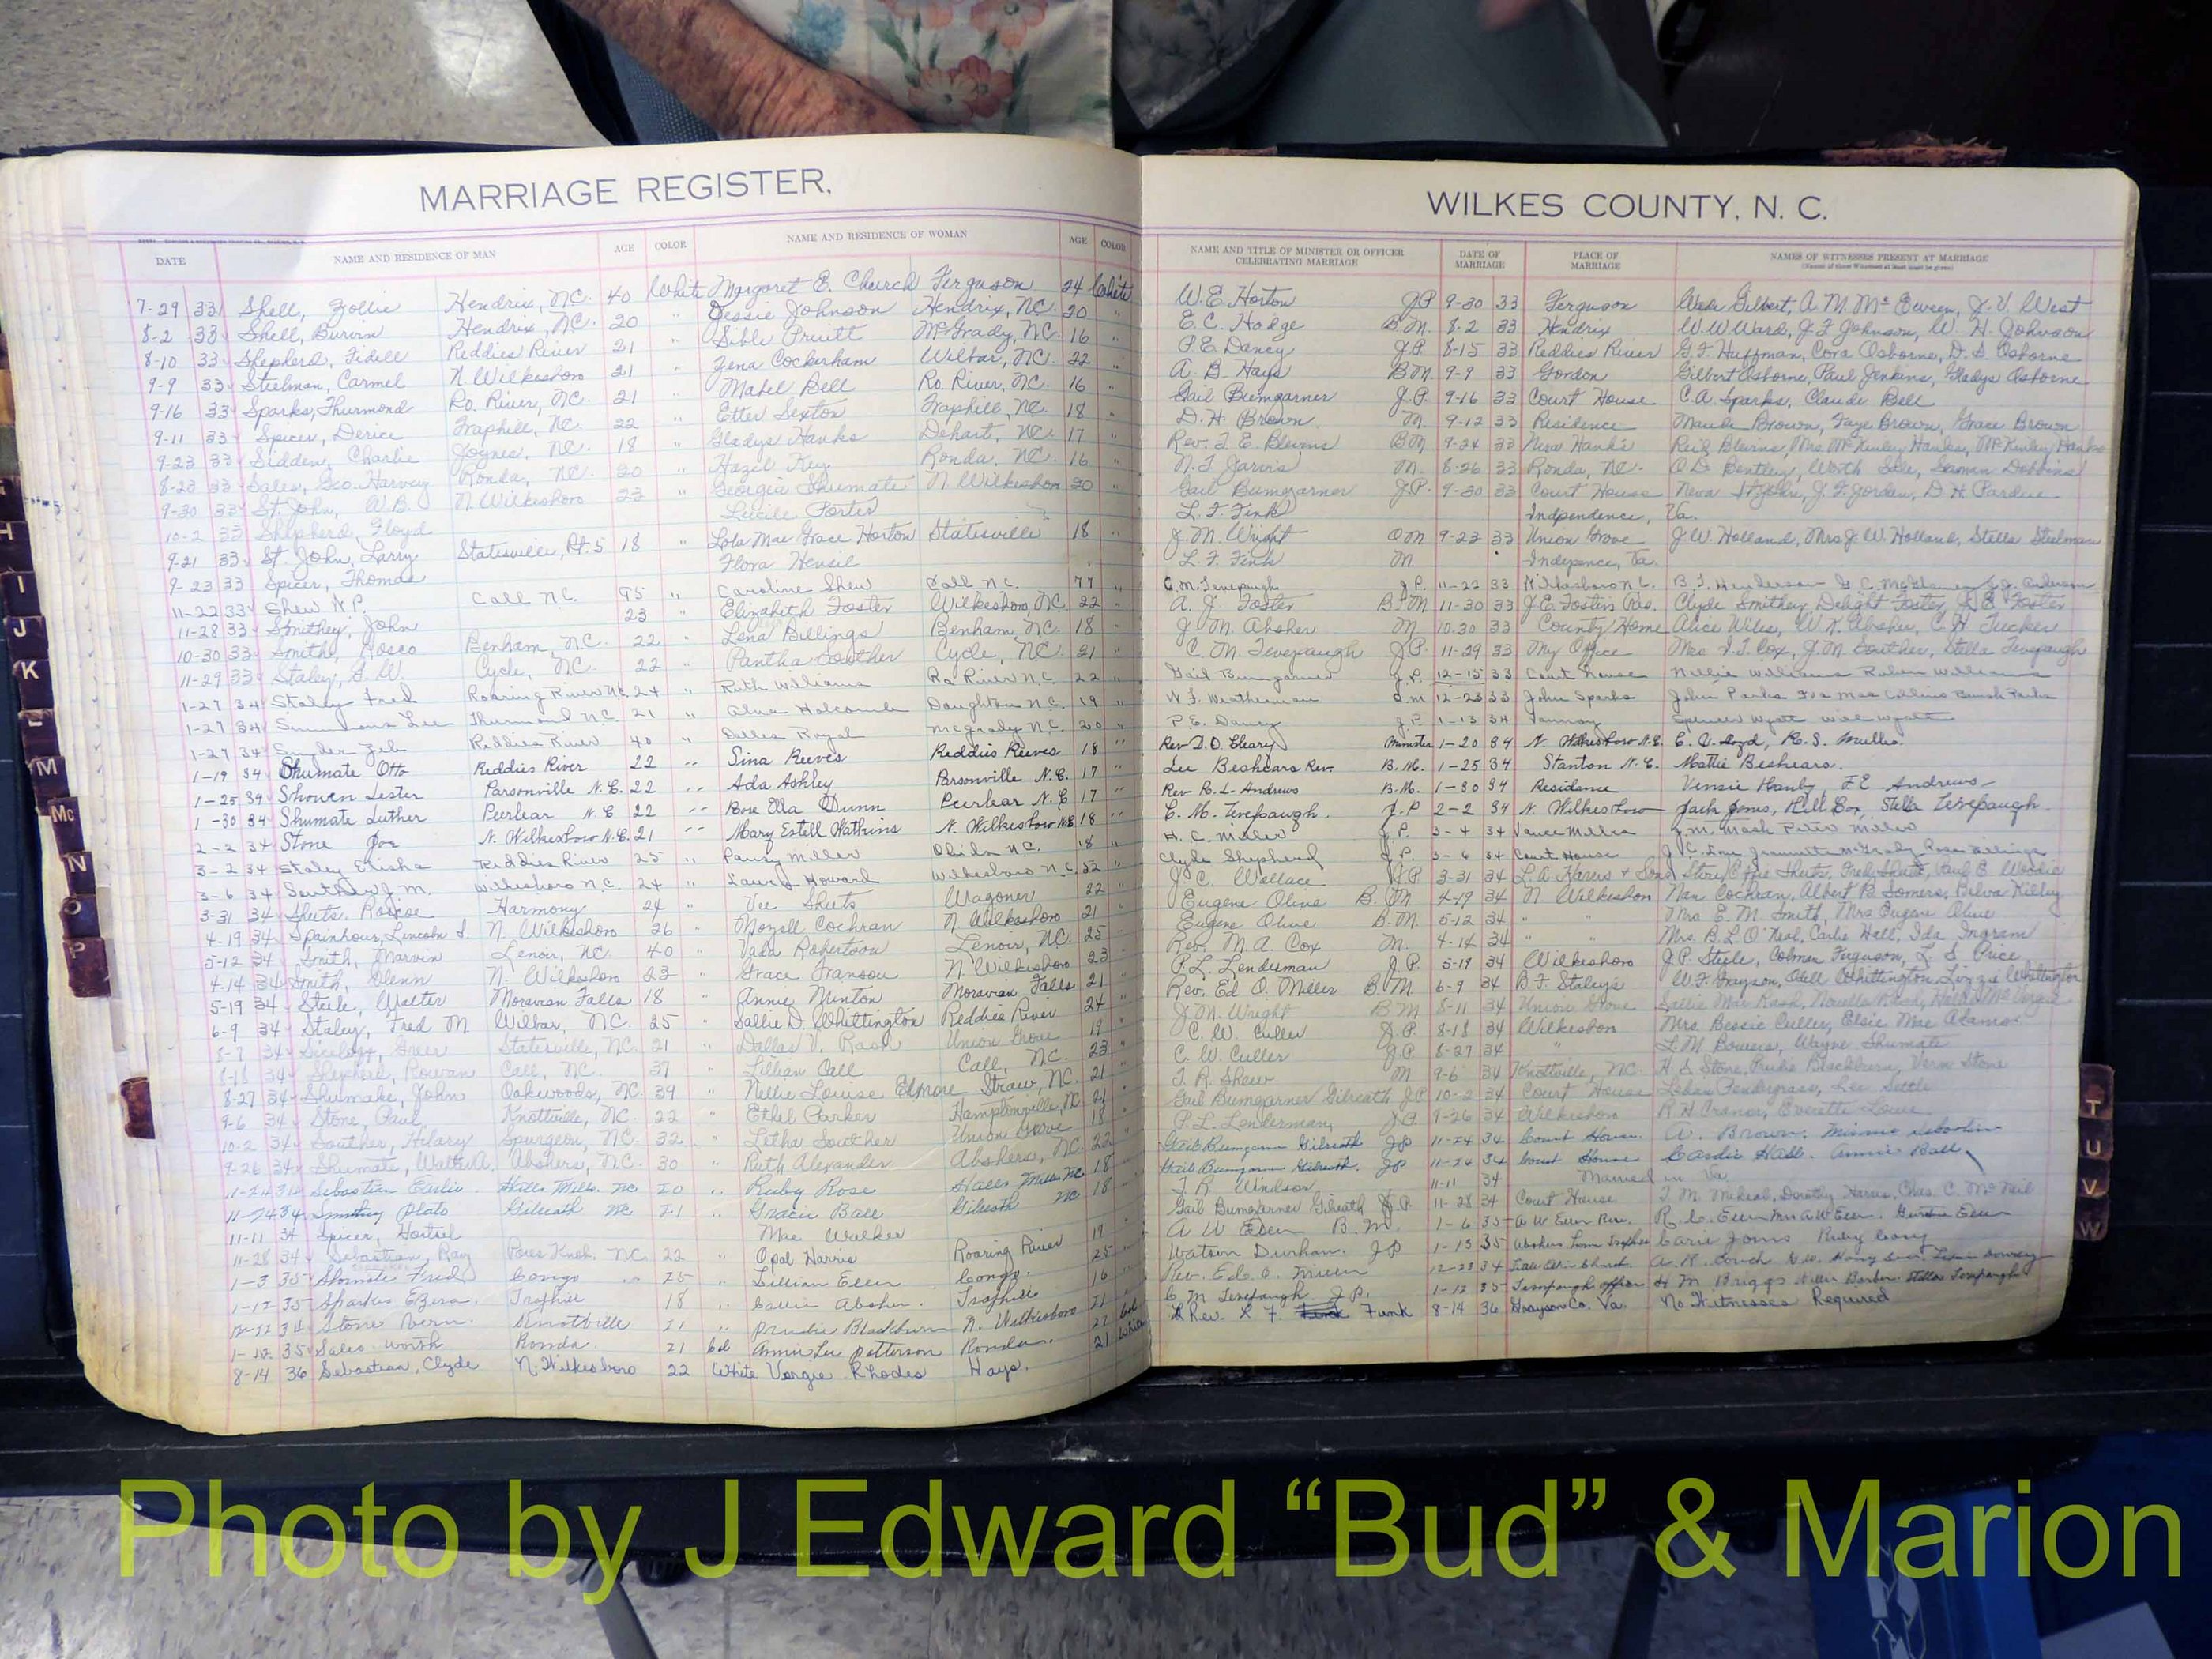 MARRIAGE REGISTER.
DATE NAME AND RESIDENCE OF MAN AGE COLOR NAME AND RESIDENCE OF WOMAN AGE COLOR
7-29 33 Shell, Hendrix, N.C. 40 White Margaret E. Church Ferguson 24 White
8-2 33 Shell, Hendrix, N.C. 20 " Jessie Johnson Hendrix, N.C. 20 "
8-10 33 Shepherd, Fidell Reddies River 21 " Sible Pruitt McGrady, N.C. 16 "
9-9 33 Steelman, Carmel N. Wilkesboro 21 " Zena Cockerham Wilbar, N.C. 22 "
9-16 33 Sparks, Thurmond Ro. River, N.C. 21 " Mabel Bell Ro. River, N.C. 16 "
9-11 33 Spicer, Derice Traphill, N.C. 22 " Etter Sexton Traphill, N.C. 18 "
9-23 33 Sidden, Charlie Joynes, N.C. 18 " Gladys Hanks Dehart, N.C. 17 "
8-23 33 Sales, Geo. Harvey Ronda, N.C. 20 " Hazel Key Ronda, N.C. 16 "
9-30 33 St. John, W.B. N. Wilkesboro 23 " Georgia Shumate N. Wilkesboro 20 "
10-2 33 Shepherd, Floyd Lucile Porter
9-21 33 St. John, Larry Statesville, Rt. 5 18 " Lola Mae Grace Horton Statesville 18 "
9-23 33 Spicer, Thomas Flora
11-22 33 Shew N.P. Call N.C. 95 " Caroline Shew Call N.C. 77 "
11-28 33 Smithey, John 23 " Elizabeth Foster Wilkesboro, N.C. 22 "
10-30 33 Smith, Rosco Benham, N.C. 22 " Lena Billings Benham, N.C. 18 "
11-29 33 Staley, Cycle, N.C. 22 " Pantha Souther Cycle, N.C. 21 "
1-27 34 Staley Fred Roaring River N.C. 24 " Ruth Williams Ro River N.C. 22 "
1-27 34 Simmons Lee Thurmond N.C. 21 " Alva Holcomb Doughton N.C. 19 "
1-27 34 Snyder Zeb Reddies River 40 " Della Royal McGrady N.C. 20 "
1-19 34 Shumate Otto Reddies River 22 " Sina Reeves Reddies Reeves 18 "
1-25 34 Lester Parsonville N.C. 22 " Ada Ashley Parsonville N.C. 17 "
1-30 34 Shumate Luther N.C 22 " Rose Ella Dunn N.C 17 "
2-2 34 Stone Joe N. Wilkesboro N.C. 21 " Mary Estell Watkins N. Wilkesboro N.C. 18 "
3-2 34 Staley Elisha Reddies River 25 " Pansy Miller N.C. 18 "
3-6 34 Souther J.M. Wilkesboro N.C. 24 " Laura Howard Wilkesboro N.C. 22
3-31 34 Sheets, Roscoe Harmony 24 " Vee Sheets Wagoner 22 "
4-19 34 Spainhour, Lincoln N. Wilkesboro 26 " Mozell Cochran N. Wilkesboro 21
5-12 34 Smith, Marvin Lenoir, N.C. 40 " Vada Robertson Lenoir, N.C. 25
4-14 34 Smith, Glenn N. Wilkesboro 23 " Grace Transou N. Wilkesboro 23
5-19 34 Steele, Walter Moravian Falls 18 " Annie Minton Moravian Falls 21
6-9 34 Staley, Fred M. Wilbar, N.C. 25 " Sallie D. Whittington Reddies River 24
8-7 34 Greer Statesville, N.C. 21 " Dallas V. Rash Union Grove 19
8-18 34 Shepherd, Rowan Call, N.C. 37 " Lillian Call Call, N.C. 23
8-27 34 Shumake, John Oakwoods, N.C. 39 " Nellie Louise Elmore Straw, N.C. 21
9-6 34 Stone, Paul Knottville, N.C. 22 " Ethel Parker Hamptonville, N.C. 21
10-2 34 Souther, Hilary Spurgeon, N.C. 32 " Letha Souther Union Grove 18
9-26 34 Shumate, Walter A. Abshers, N.C. 30 " Ruth Alexander Abshers, N.C. 22
11-24 34 Sebastian Earlie Halls Mills, NC 20 " Ruby Rose Halls Mills NC 18
11-24 34 Smithey Plato Gilreath NC 21 " Gracie Ball Gilreath NC 18
11-11 34 Spicer, Mae Walker
11-28 34 Sebastian, Ray Pores Knob, N.C. 22 " Opal Harris Roaring River 17
1-3 35 Shumate Fred Congo 25 " Lillian Eller Congo 25
1-12 35 Sparks Ezera Traphill 18 " Callie Absher Traphill 16
12-22 34 Stone Vern Knottville 21 " Prudie Blackburn N. Wilkesboro 21
1-12 35 Sales Worth Ronda 21 Col Annie Lee Patterson Ronda 22 Col
8-14 36 Sebastian, Clyde N. Wilkesboro 22 White Vergie Rhodes Hays 21 White
WILKES COUNTY, N. C.
NAME AND TITLE OF MINISTER OR OFFICER CELEBRATING MARRIAGE DATE OF MARRIAGE PLACE OF MARRIAGE NAMES OF WITNESSES PRESENT AT MARRIAGE
(Names of three Witnesses at least must be given)
W. E. Horton J.P. 9-30 33 Ferguson Gilbert, A. M. McEween, J. V. West
E. C. Hodge B.M. 8-2 33 Hendrix W. W. Ward, J. F. Johnson, W. H. Johnson
P. E. Dancy J.P. 8-15 33 Reddies River G. F. Huffman, Cora Osborne, D. S. Osborne
A. B. Hays B.M. 9-9 33 Gordon Gilbert Osborne, Paul Jenkins, Gladys Osborne
Gail Bumgarner J.P. 9-16 33 Court House C. A. Sparks, Claude Bell
D. H. Brown M. 9-12 33 Residence Maude Brown, Faye Brown, Grace Brown
Rev. F. E. Blevins B.M. 9-24 33 Neva Hank's Reid Blevins, Mrs. McKinley Hanks, McKinley Hanks
N. T. Jarvis M. 8-26 33 Ronda, N.C. O. D. Bentley, Worth Sale, Dobbins
Gail Bumgarner J.P. 9-30 33 Court House Neva St John, J. F. Jorden, D. H. Pardue
L. F. Fink Indpendence, Va.
J. M. Wright O M 9-23 33 Union Grove J. W. Holland, Mrs J. W. Holland, Stella Steelman
L. F. Fink M. Indepence, Va.
C. M. Tevepaugh J.P. 11-22 33 Wilkesboro N.C. B. F. Henderson
A. J. Foster B.M 11-30 33 J. E. Fosters Res. Clyde Smithey, Delight Foster, J. E. Foster
J. M. Absher M 10-30 33 County Home Alice Wiles, W. K. Absher, C. H. Tucker
C. M. Tevepaugh J.P. 11-29 33 My Office Mrs. F. T. Cox, J. M. Souther, Stella Tevepaugh
Gail Bumgarner J.P. 12-15 33 Court House Nellie Williams Ruben Williams
W. F. Weatherman 12-23 33 John Sparks John Parks Iva Mae Collins
P. E. Dancy J.P. 1-13 34 Spencer Wyatt Will Wyatt
Rev D. O. Cleary Minister 1-20 34 N. Wilkesboro N.C. R. S. Mullis
Lee Beshears Rev. B.M. 1-25 34 Stanton N.C. Mattie Beshears.
Rev R. L. Andrews B.M. 1-30 34 Residence Hanby, F.E Andrews
C. M. Tevepaugh J.P 2-2 34 N. Wilkesboro Jack Jones, Stella Tevepaugh.
H. C. Miller J.P. 3-4 34 Vance Miller J. M. Mash Peter Miller
Clyde Shepherd J.P. 3-6 34 Court House
J. C. Wallace J.P 3-31 34 Store Sheets, Fred Sheets, Paul B. Woodie
Eugene Olive B. M 4-19 34 N Wilkesboro Nan Cochran, Albert B. Somers, Belva Killey
Eugene Olive B.M. 5-12 34 " " Mrs. E. M. Smith, Mrs Eugene Olive
Rev. M. A. Cox M. 4-14 34 " " Mrs. B. L. O'Neal, Carlie Hall, Ida Ingram
P. L. Lenderman J.P. 5-19 34 Wilkesboro J. P. Steele, Colman Ferguson, L. S. Price
Rev. Ed O. Miller B M. 6-9 34 B. F. Staley's W. F. Grayson, Odell Whittington, Lizzie Whittington
J. M. Wright B M 8-11 34 Union Grove Sallie Mae Rash, Novella Rash
C. W. Culler J.P. 8-18 34 Wilkesboro Mrs. Bessie Culler, Elsie Mae Adams
C. W. Culler J.P 8-27 34 " L. M. Bowers, Wayne Shumate
T. R. Shew M 9-6 34 Knottville, N.C. R. S. Stone, Prudie Blackburn, Vern Stone
Gail Bumgarner Gilreath J.P 10-2 34 Court House Pendergrass, Lee Settle
P. L. Lenderman J.P. 9-26 34 Wilkesboro R H Cranor, Everette Lowe
Gail Bumgarner Gilreath JP 11-24 34 Court House A. Brown, Minnie Sebastian
Gail Bumgarner Gilreath JP 11-24 34 Court House Cardie Hall, Annie Ball
T. R. Windsor 11-11 34 Married in Va.
Gail Bumgarner Gilreath J.P 11-28 34 Court House T. M. Mikeal, Dorothy Harris, Chas. C. McNeil
A W Eller B.M. 1-6 35 A W Eller Res. R. C. Eller Mrs A W Eller
Watson Durham J.P 1-13 35 Ruby
Rev. Ed. O. Miller 12-23 34
C. M Tevepaugh J.P. 1-12 35 Tevepaugh office H M. Briggs Stella Tevepaugh
Rev. L F. Funk 8-14 36 Grayson Co. Va. No Witnesses Required
H
I
J
K
L
M
Mc
N
O
P
T
U
V
W
Photo by J Edward “Bud” & Marion